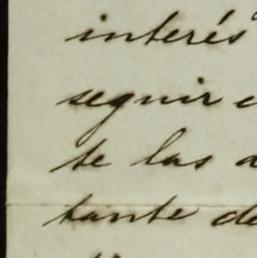 interés
seguir
te las
tante de